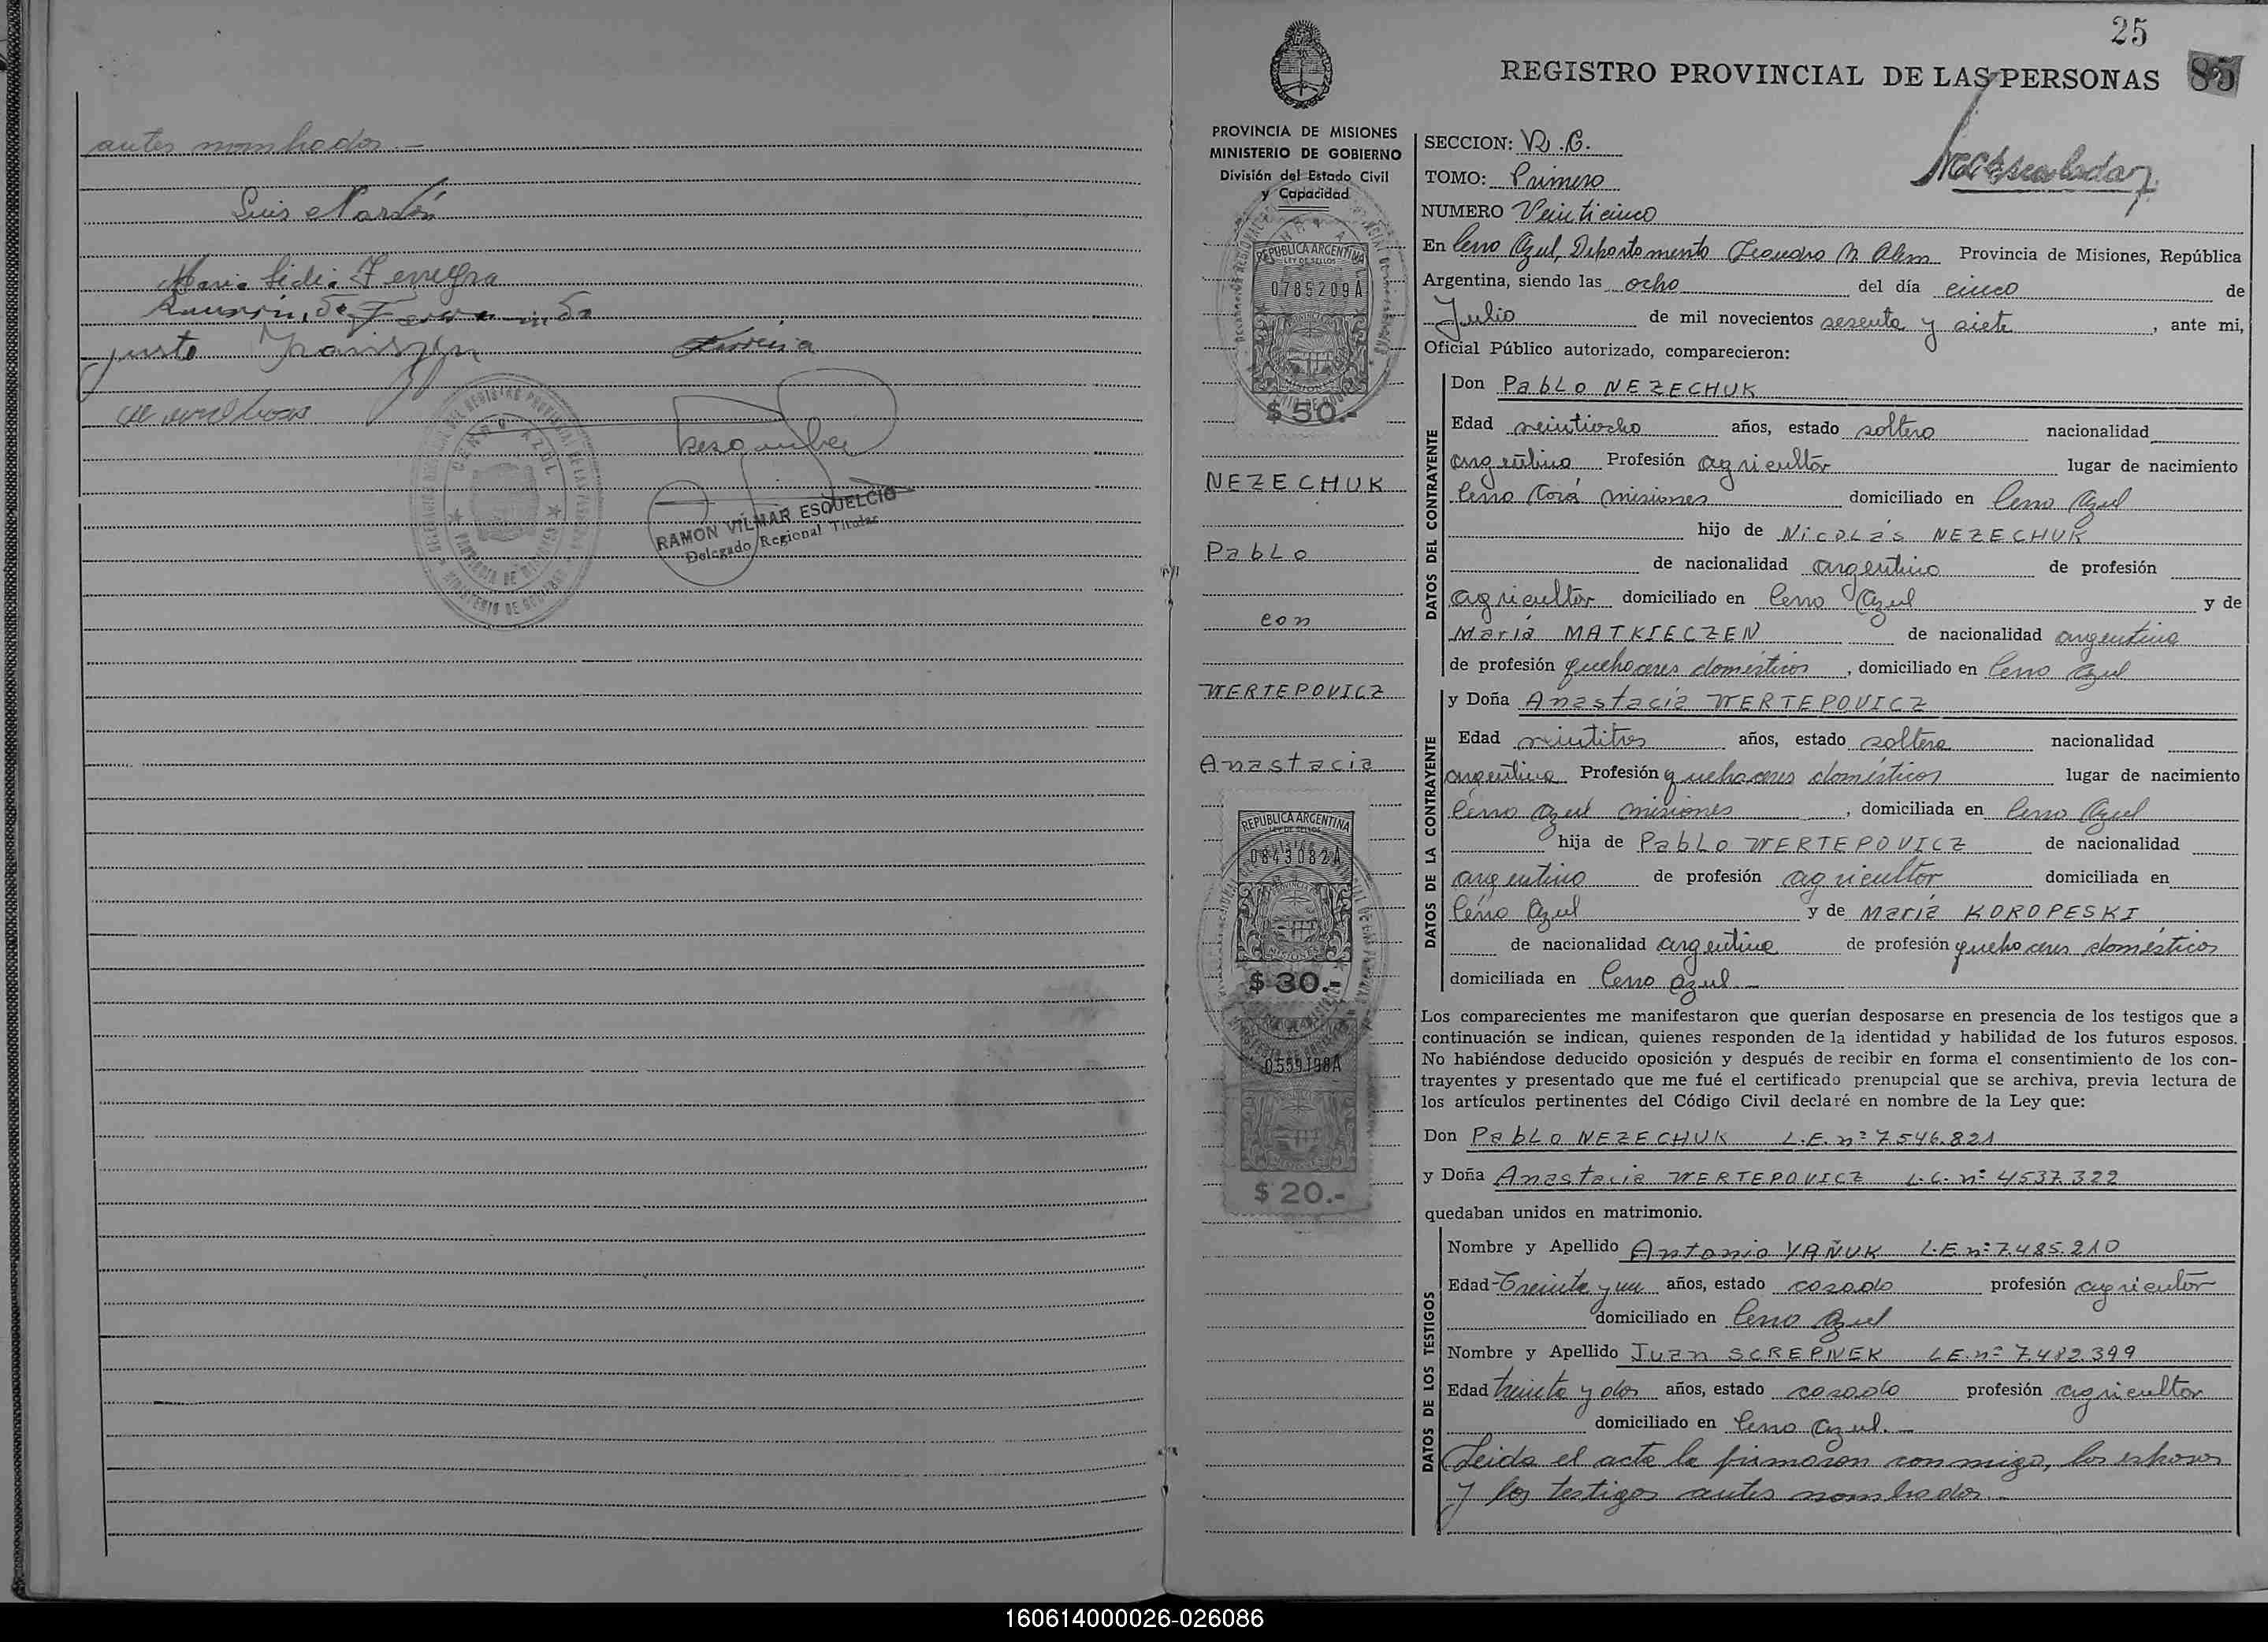 antes nombrados.—
Luis Nardón
Maria Lidia Ferreyra
Ramón
justo
RAMON VILMAR ESQUELCIO
Delegado Regional Titular
25
REGISTRO PROVINCIAL DE LAS PERSONAS 85
PROVINCIA DE MISIONES
MINISTERIO DE GOBIERNO
División del Estado Civil
y Capacidad
REPUBLICA ARGENTINA
LEY DE SELLOS
0785209A
$ 50.-
NEZECHUK
Pablo
con
WERTEPOVICZ
Anastacia
REPUBLICA ARGENTINA
LEY DE SELLOS
0843082A
$ 30.-
0559198A
$ 20.-
SECCION: R.C.
TOMO: Primero
NUMERO Veinticinco
En Cerro Azul, Departamento Leandro N Alem Provincia de Misiones, República
Argentina, siendo las ocho del día cinco de
Julio de mil novecientos sesenta y siete, ante mi,
Oficial Público autorizado, comparecieron:
DATOS DEL CONTRAYENTE
Don Pablo NEZECHUK
Edad veintiocho años, estado soltero nacionalidad
argentino Profesión agricultor lugar de nacimiento
Cerro Corá misiones domiciliado en Cerro Azul
hijo de Nicolás NEZECHUK
de nacionalidad argentino de profesión
agricultor domiciliado en Cerro Azul y de
María MATKIECZEN de nacionalidad argentina
de profesión quehaceres domésticos, domiciliado en Cerro Azul
DATOS DE LA CONTRAYENTE
y Doña Anastacia WERTEPOVICZ
Edad veintitres años, estado soltera nacionalidad
argentina Profesión quehaceres domésticos lugar de nacimiento
Cerro Azul misiones, domiciliada en Cerro Azul
hija de Pablo WERTEPOVICZ de nacionalidad
argentino de profesión agricultor domiciliada en
Cerro Azul y de María KOROPESKI
de nacionalidad argentina de profesión quehaceres domésticos
domiciliada en Cerro Azul.—
Los comparecientes me manifestaron que querían desposarse en presencia de los testigos que a
continuación se indican, quienes responden de la identidad y habilidad de los futuros esposos.
No habiéndose deducido oposición y después de recibir en forma el consentimiento de los con-
trayentes y presentado que me fué el certificado prenupcial que se archiva, previa lectura de
los artículos pertinentes del Código Civil declaré en nombre de la Ley que:
Don Pablo NEZECHUK L.E. nº 7.546.821
y Doña Anastacia WERTEPOVICZ L.C. nº 4537.322
quedaban unidos en matrimonio.
DATOS DE LOS TESTIGOS
Nombre y Apellido Antonio YAÑUK L.E nº 7.485.210
Edad Treinta y un años, estado casado profesión agricutor
domiciliado en Cerro Azul
Nombre y Apellido Juan SCREPNEK L.E. nº 7.482.399
Edad treinta y dos años, estado casado profesión agricultor
domiciliado en Cerro Azul.—
Leida el acta la firmaron conmigo, los esposos
y los testigos antes nombrados.—
160614000026-026086